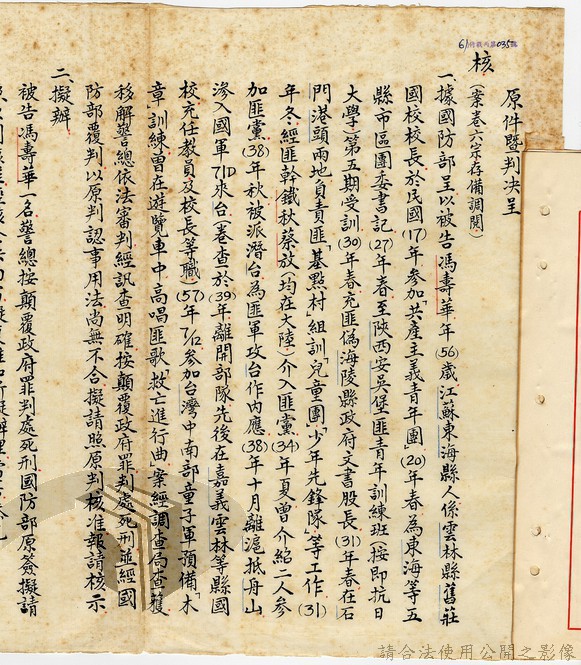 原件暨判決呈
核
(案卷六宗存備調閱)
一、據國防部呈以被告馮壽華年(56)歲江蘇東海縣人係雲林縣舊莊
國校校長於民國(17)年參加「共產主義青年團」(20)年春為東海等五
縣市區團委書記(27)年春至陝西安吳堡匪青年訓練班(按即抗日
大學)第五期受訓(30)年春充匪偽海陵縣政府文書股長(31)年春在石
門港頭兩地負責匪「基點村」組訓「兒童團」「少年先鋒隊」等工作(31)
年冬經匪幹鐵秋蔡放(均在大陸)介入匪黨(34)年夏曾介紹二人參
加匪黨(38)年秋被派潛台為匪軍攻台作內應(38)年十月離滬抵舟山
滲入國軍71D來台(卷查於(39)年離開部隊先後在嘉義雲林等縣國
校充任教員及校長等職)(57)年7/12參加台灣中南部童子軍預備「木
章」訓練曾在遊覽車中高唱匪歌「救亡進行曲」案經調查局查獲
移解警總依法審判經訊查明確按顛覆政府罪判處死刑並經國
防部覆判以原判認事用法尚無不合擬請照原判核准報請核示
二、擬辦
被告馮壽華一名警總按顛覆政府罪判處死刑國防部原簽擬請
請合法使用公開之影像